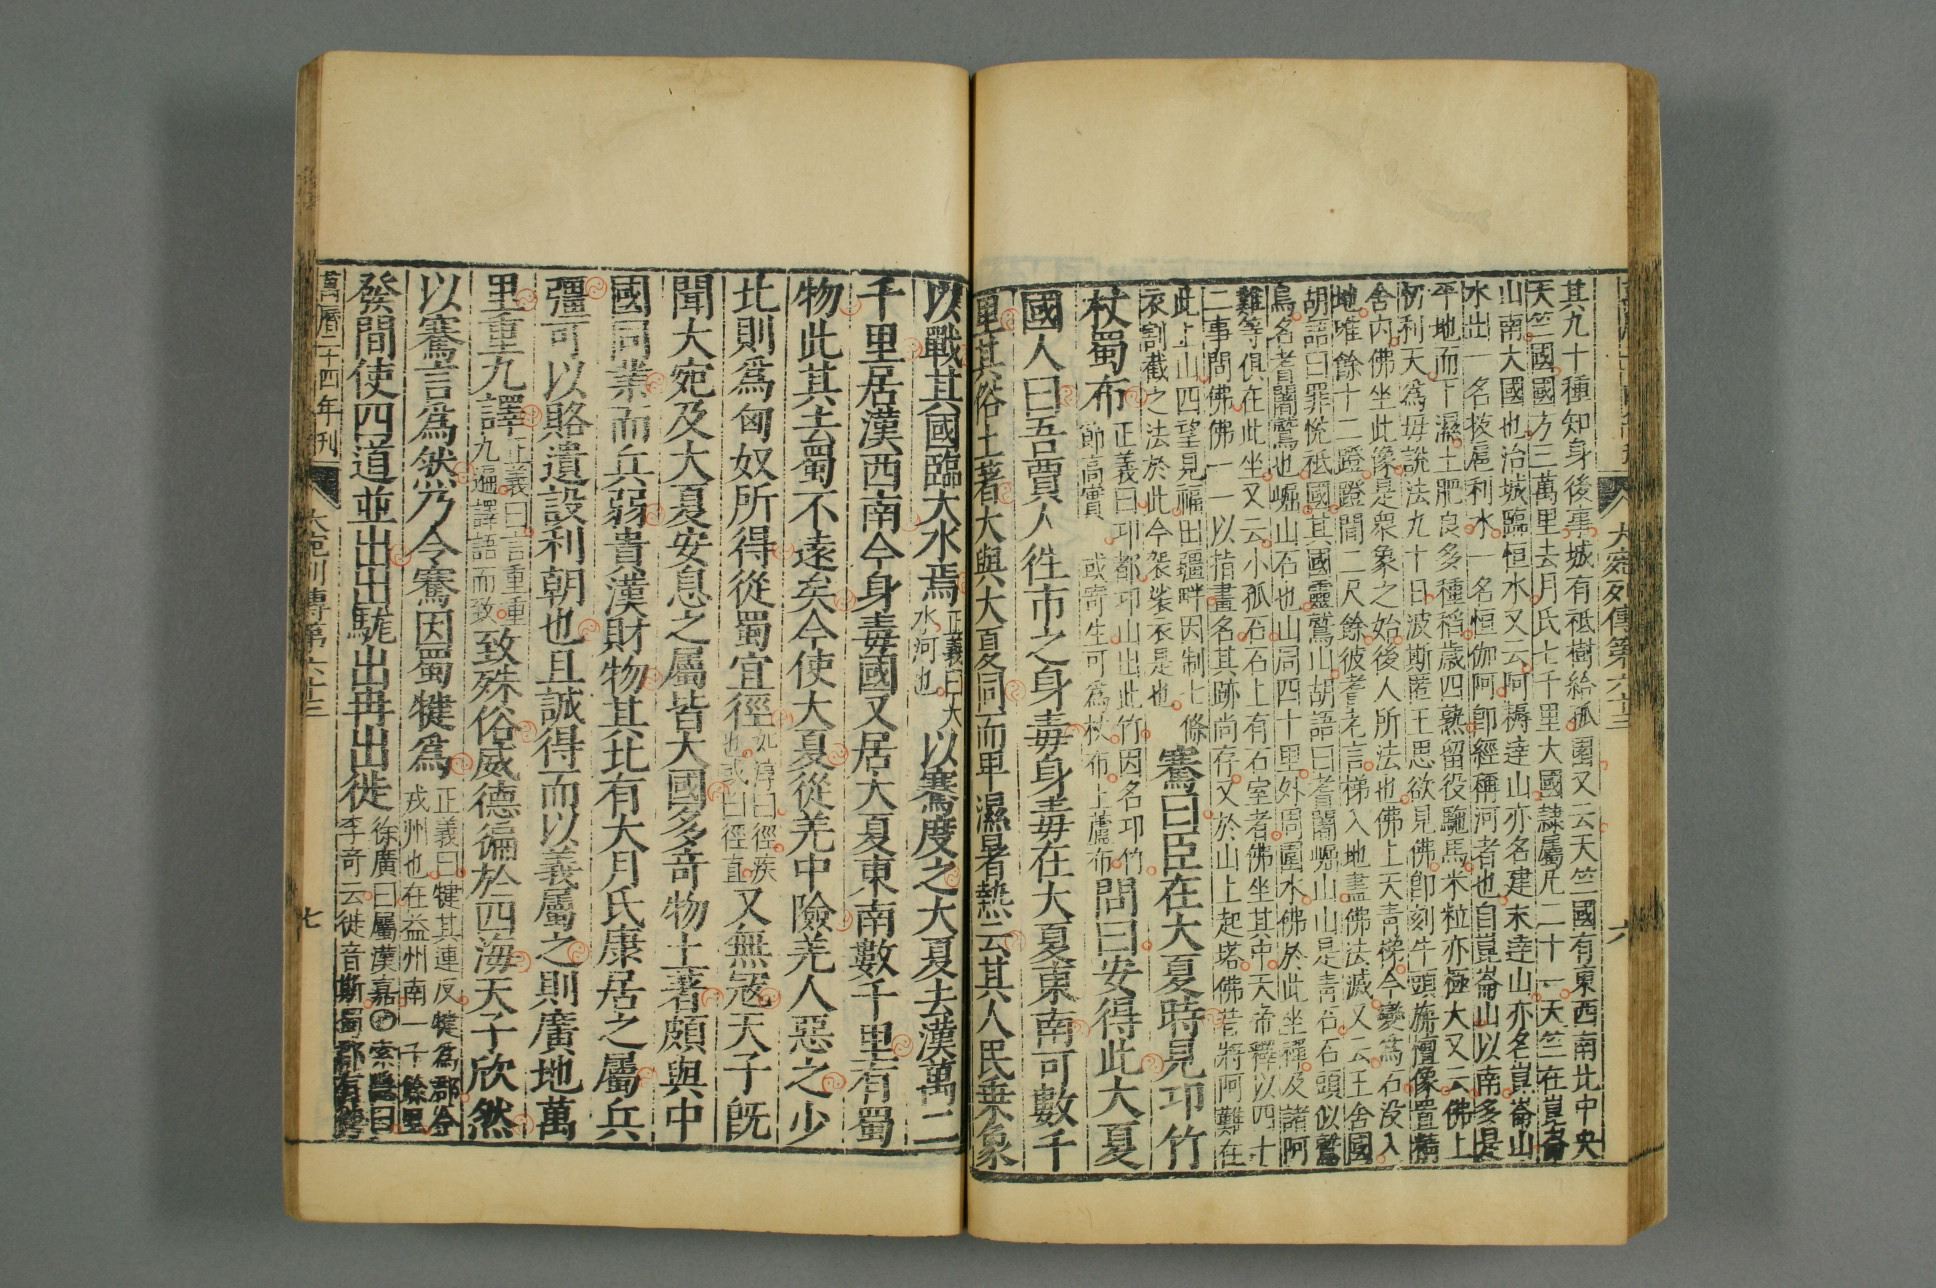 大宛列傳第六十三
六
其九十種知身後事城有祗樹給孤園又云天竺國有東西南北中央
天竺國國方三萬里去月氏七千里大國隷屬凡二十一天竺在崑崙
山南大國也治城臨恒水又云阿耨達山亦名建末達山亦名崑崙山
水出一名拔扈利水一名恒伽河卽經稱河者也自崑崙山以南多是
平地而下濕土肥良多種稻歲四熟留役駝馬米粒亦極大又云佛上
忉利天爲母說法九十日波斯匿王思欲見佛卽刻牛頭旃檀像置精
舍內佛坐此像是衆象之始後人所法也佛上天靑梯今變爲石没入
地唯餘十二蹬蹬間二尺餘彼耆老言梯入地盡佛法滅又云王舍國
胡語曰罪悅祗國其國靈鷲山胡語曰耆闍崛山山是靑石石頭似鷲
鳥名耆闍鷲也崛山石也山周四十里外周圍水佛於此坐禪及諸阿
難等俱在此坐又云小孤石石上有石室者佛坐其中天帝釋以四十
二事問佛佛一一以指畫名其跡尚存又於山上起塔佛昔將阿難在
此上山四望見福田疆畔因制七條
衣割截之法於此今袈裟衣是也
騫曰臣在大夏時見邛竹
杖蜀布
正義曰邛都邛山出此竹因名邛竹
節高實 或寄生可爲杖布土蘆布
問曰安得此大夏
國人曰吾賈人徃市之身毒身毒在大夏東南可數千
里其俗土著大與大夏同而卑濕暑熱云其人民乗象
以戰其國臨大水焉
正義曰大
水河也
以騫度之大夏去漢萬二
千里居漢西南今身毒國又居大夏東南數千里有蜀
物此其去蜀不遠矣今使大夏從羌中險羌人惡之少
北則爲匈奴所得從蜀宜徑
如淳曰徑疾
也或曰徑直
又無宼天子旣
聞大宛及大夏安息之屬皆大國多奇物土著頗與中
國同業而兵弱貴漢財物其北有大月氏康居之屬兵
彊可以賂遺設利朝也且誠得而以義屬之則廣地萬
里重九譯
正義曰言重重
九遍譯語而致
致殊俗威德徧於四海天子欣然
以騫言爲然乃令騫因蜀犍爲
正義曰犍其連反犍爲郡今
戎州也在益州南一千餘里
發間使四道並出出駹出冉出徙
徐廣曰屬漢嘉○索隱曰
李竒云徙音斯蜀郡有徙
萬曆二十四年刊
大宛列傳第六十三
七